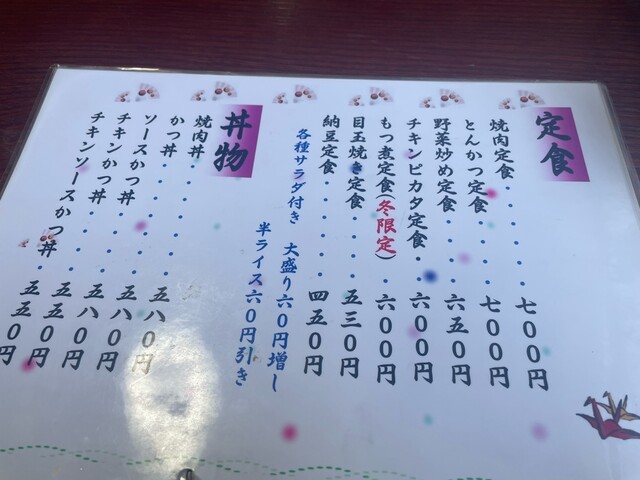 定食
焼肉定食・・・・・・七〇〇円
とんかつ定食・・・・七〇〇円
野菜炒め定食・・・・六五〇円
チキンピカタ定食・・六〇〇円
もつ煮定食(冬限定)・六〇〇円
目玉焼き定食・・・・五三〇円
納豆定食・・・・・・四五〇円
各種サラダ付き 大盛り六〇円増し
半ライス六〇円引き
丼物
焼肉丼・・・・・・・五八〇円
かつ丼・・・・・・・五八〇円
ソースかつ丼・・・・五八〇円
チキンかつ丼・・・・五五〇円
チキンソースかつ丼・五五〇円